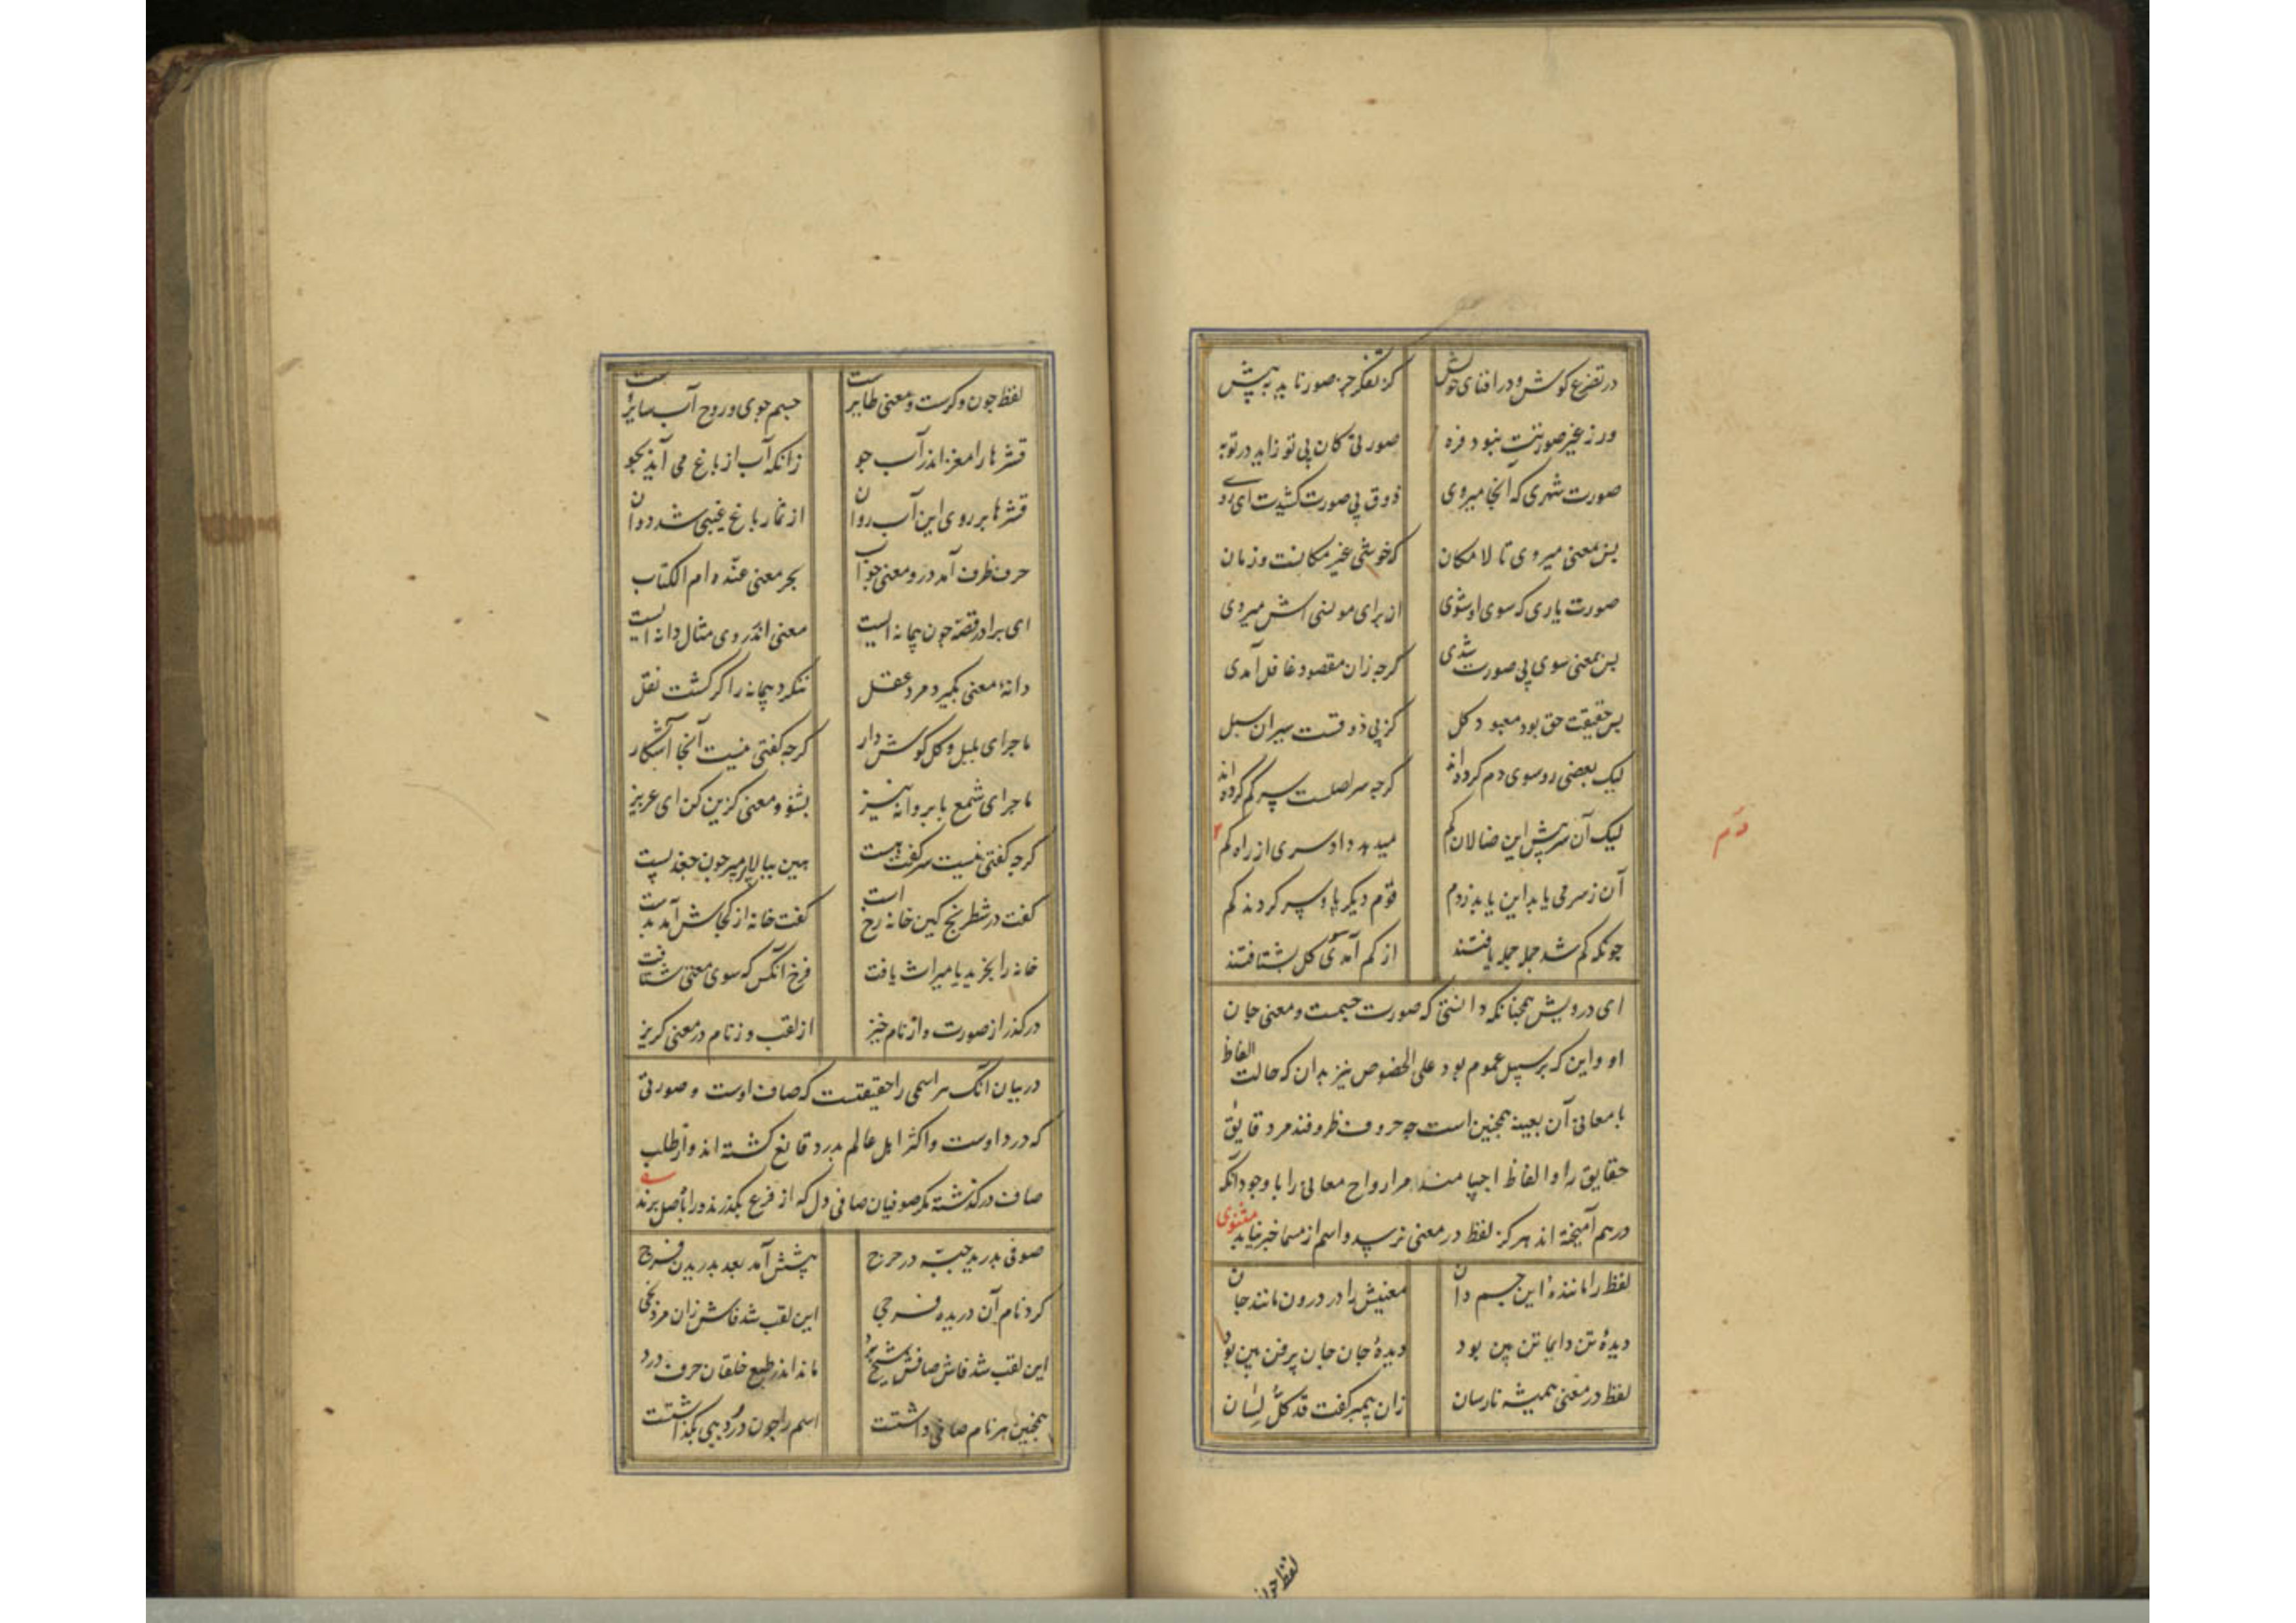 در تضرع کوش و در افنای خویش	کز تفکر جز صور ناید به پیش
ور ز غیر صورتت نبود فره	صورتی کان بی تو زاید در تو به
صورت شهری که آنجا میروی	ذوق بی صورت کشیدت ای روی
پس بمعنی میروی تا لا مکان	که خوشی غیر مکانست و زمان
صورت یاری که سوی او شوی	از برای مونسی اش میروی
پس بمعنی سوی بی صورت شدی	کرجه زان مقصود غافل آمدی
پس حقیقت حق بود معبود کل	کز پی ذوقست سیران سبل
لیک بعضی رو سوی دم کرده اند	کرجه سر اصلست سر کم کرده اند
لیک آن سر پیش این ضالان کم	میدهد داد سری از راه کم
دم
آن ز سر می یابد این یابد ز دم	قوم دیکر پا و سر کردند کم
چونکه کم شد جمله جمله یافتند	از کم آمد سوی کل بشتافتند
ای درویش همجنانکه دانستی که صورت جسمت و معنی جان
او و این که بر سبیل عموم بود علی الخصوص نیز بدان که حالت الفاظ
با معانی آن بعینه همجنین است جه حروف ظروفند مر دقایق
حقایق را و الفاظ اجسامند مر ارواح معانی را با وجود آنکه
درهم آمیخته اند هرکز لفظ در معنی نرسد و اسم از مسما خبر نیابد مثنوی
لفظ را مانندهٔ این جسم دان	معنیش را در درون مانند جان
دیدهٔ تن دایما تن بین بود	دیدهٔ جان جان پر فن بین بود
لفظ در معنی همیشه نارسان	زان پیمبر کفت قد کل لسان
لفظ جون
لفظ جون وکرست و معنی طایرست	جسم جوی و روح آب سایرست
قشرها را مغز اندر آب جو	زانکه آب از باغ می آید بجو
قشرها بر روی این آب روان	از ثمار باغ غیبی شد دوان
حرف ظرف آمد درو معنی جو آب	بحر معنی عنده ام الکتاب
ای برادر قصه جون پیمانه ایست	معنی اندر وی مثال دانه ایست
دانهٔ معنی بکیرد مرد عقل	ننکرد پیمانه را کر کشت نقل
ماجرای بلبل و کل کوش دار	کرجه کفتی نیست آنجا آشکار
ماجرای شمع با پروانه نیز	بشنو و معنی کزین کن ای عزیز
کرجه کفتی نیست سر کفت هست	هین ببالا پر مپر جون جغد پست
کفت در شطرنج کین خانه رخ است	کفت خانه از کجاش آمد بدست
خانه را بخرید یا میراث یافت	فرخ آنکس که سوی معنی شتافت
درکذر از صورت و از نام خیز	از لقب وز نام در معنی کریز
در بیان آنک هر اسمی را حقیقتست که صاف اوست و صورتی
که درد اوست و اکثر اهل عالم بدرد قانع کشته اند و از طلب
صاف درکذشته مکر صوفیان صافی دل که از فرع بکذرند و راه باصل برند
صوفی بدرید جبه در حرج	پیشش آمد بعد بدریدن فرج
کرد نام آن دریده فرجی	این لقب شد فاش زان مرد نجی
این لقب شد فاش صافش شیخ برد	ماند اندر طبع خلقان حرف درد
همجنین هر نام صافی داشتست	اسم را جون دُردیی بکذاشتست